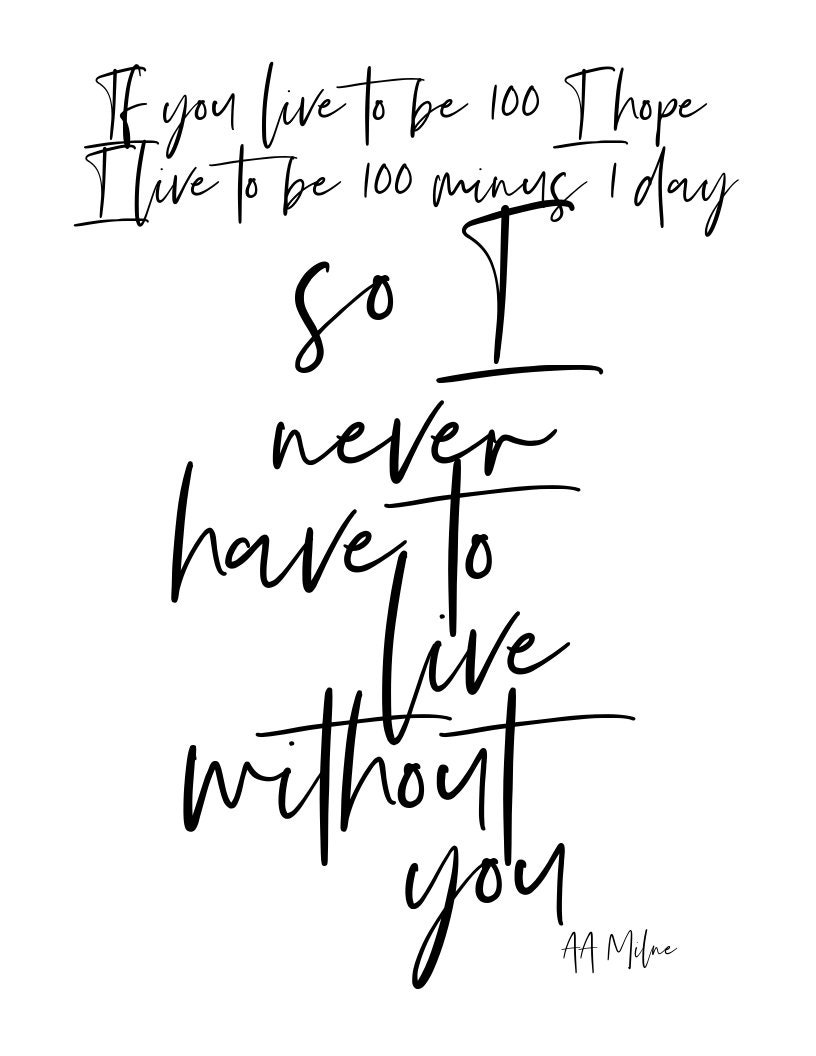 If you live to be 100 I hope
I live to be 100 minus 1 day
so I
never
have to
live
without
you
AA Milne